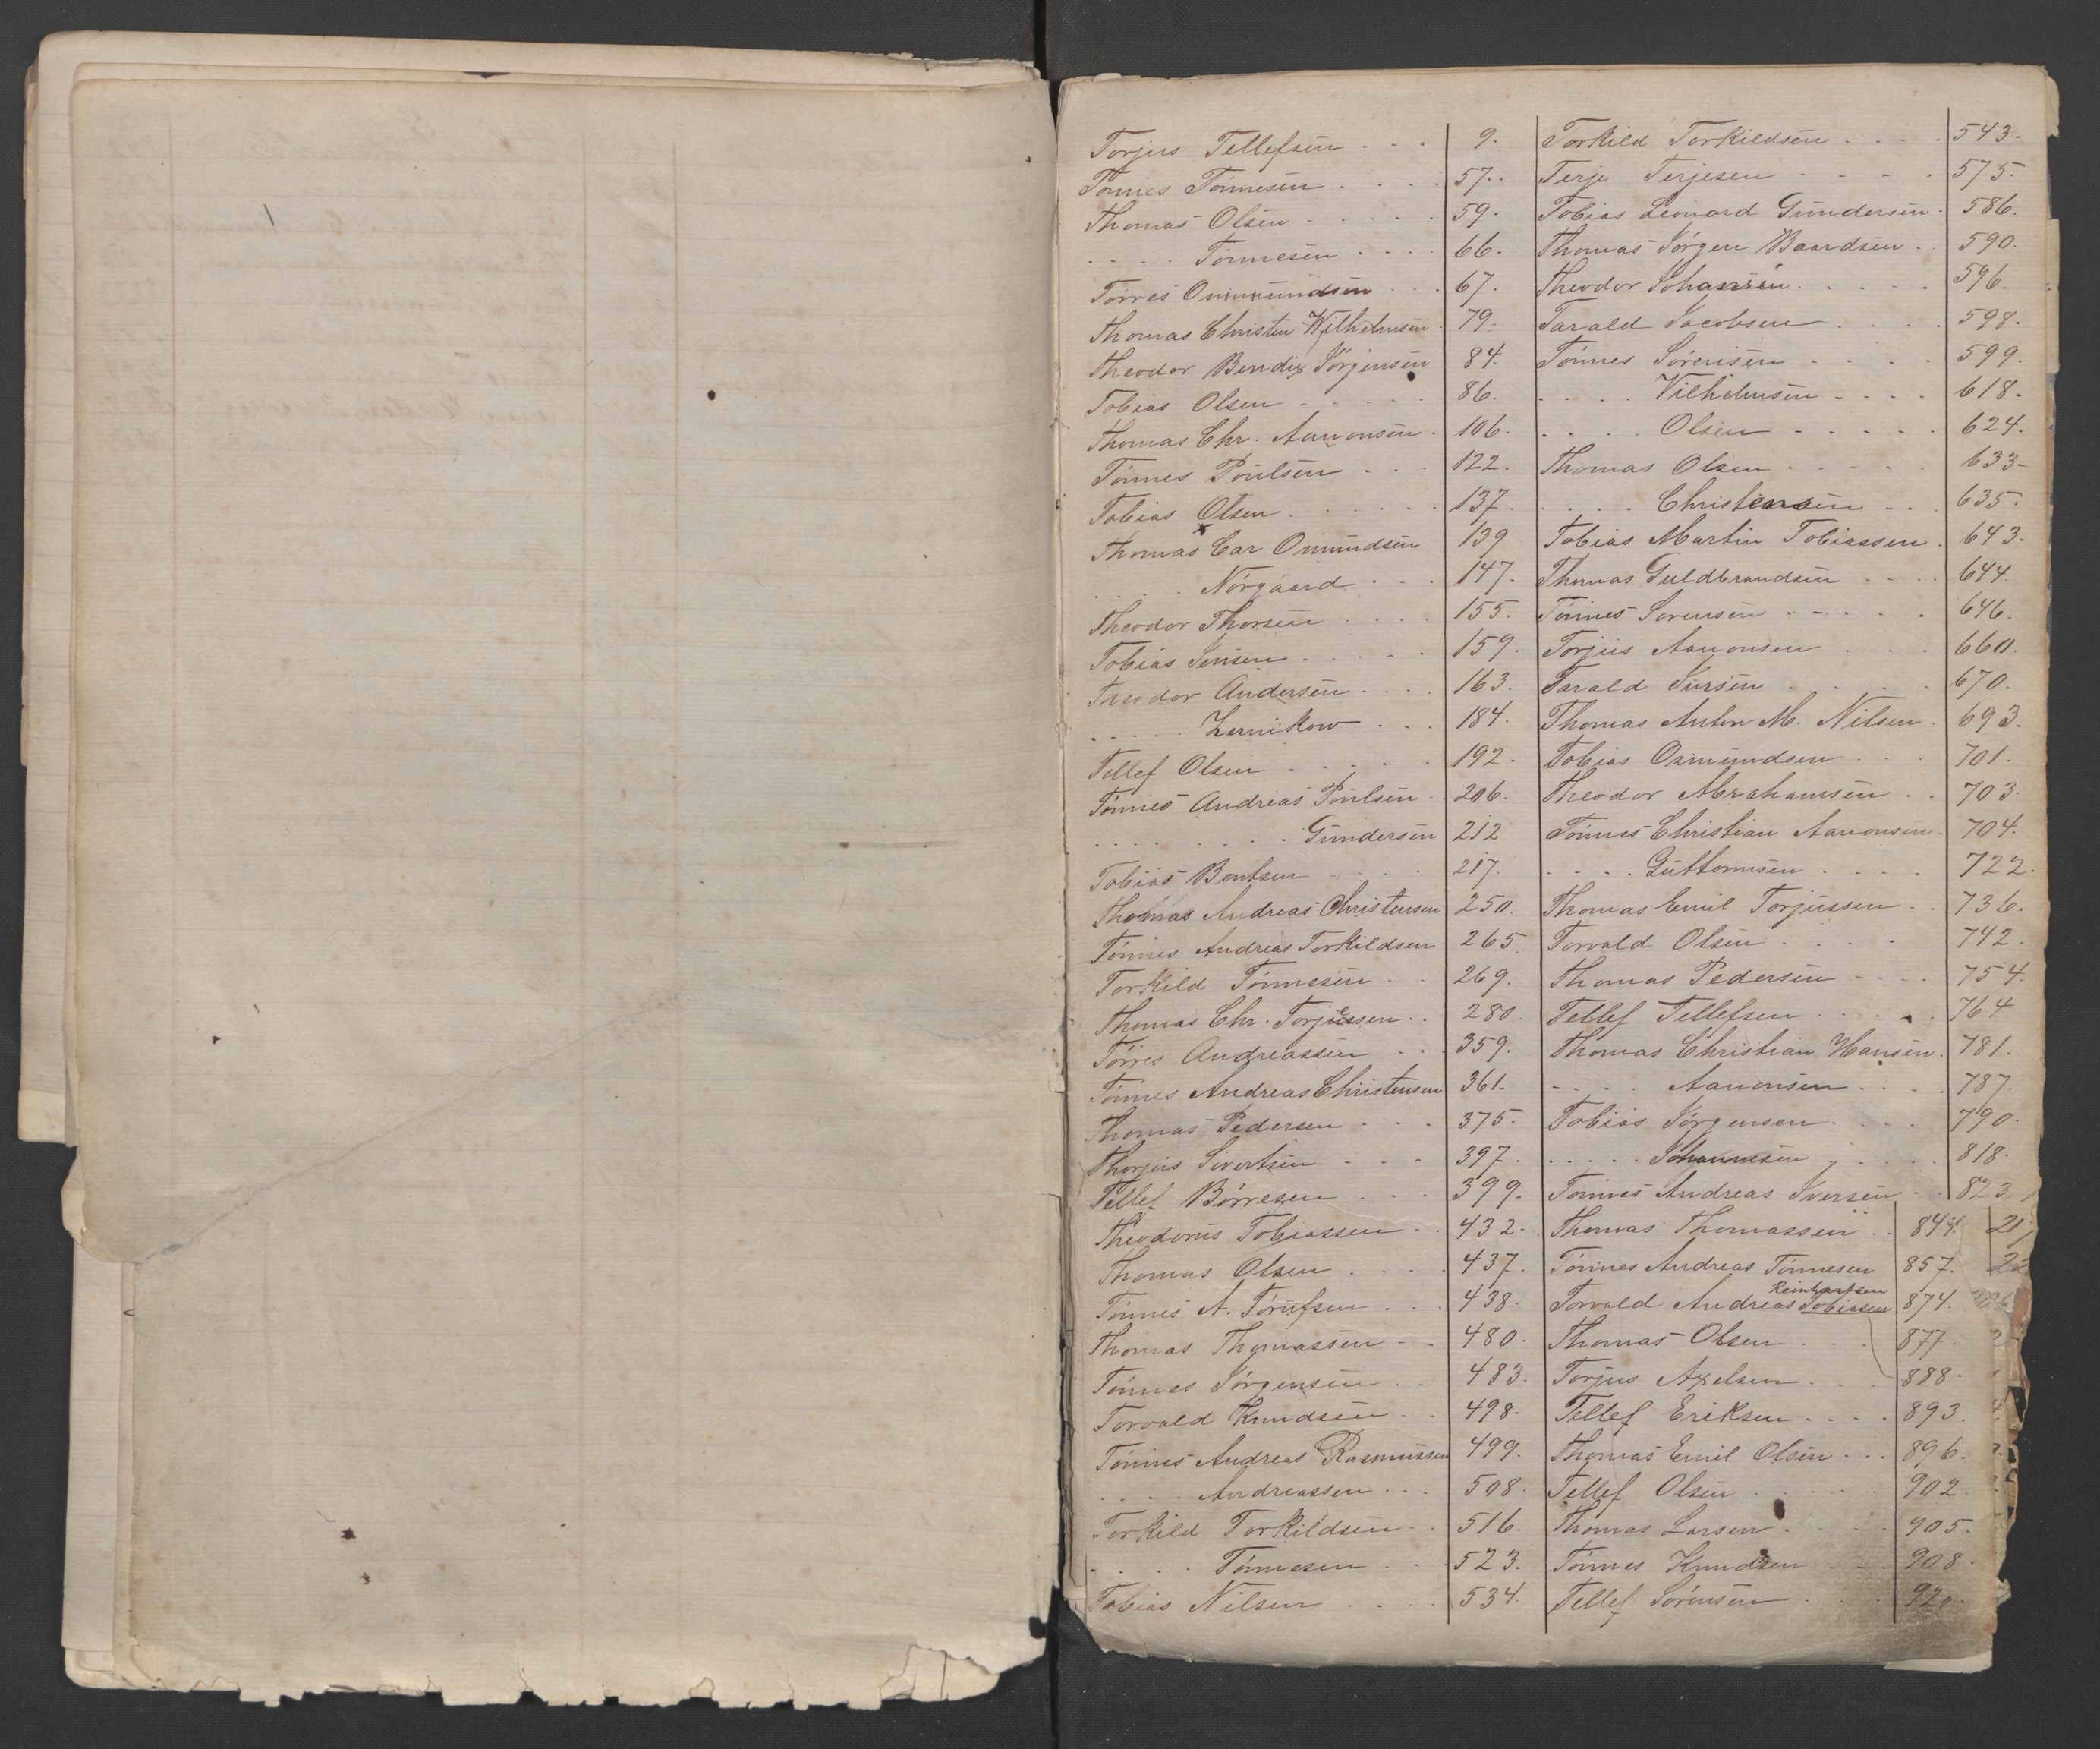 Torjus Tellefsen . . . 9.
Tönnes Tönnesen . . . . 57.
Thomas Olsen . . . . . 59.
. . . . Tönnesen . . . . 66.
Törres Ommundsen . . . 67.
Thomas Christen Wilhelmsen . 79.
Theodor Bendix Jörgensen 84.
Tobias Olsen . . . . . 86.
Thomas Chr. Aanonsen . 106.
Tönnes Poulsen . . . 122.
Tobias Olsen . . . . . . 137.
Thomas Car Omundsen 139
. . . . Nörgaard . . . 147.
Theodor Thorsen . . . . 155.
Tobias Jensen . . . . . 159.
Theodor Andersen . . . . 163.
. . . . . Zernikow . . . 184.
Tellef Olsen . . . . . 192.
Tönnes Andreas Poulsen . 206.
. . . . . . . . Gundersen 212
Tobias Bentsen . . . . 217.
Thomas Andreas Christensen 250.
Tönnes Andreas Torkildsen 265.
Torkild Tönnesen . . 269.
Thomas Chr. Torjessen . . 280.
Törres Andreassen . . . 359.
Tönnes Andreas Christensen 361.
Thomas Pedersen . . . 375.
Thorjus Sivertsen . . . 397.
Tellef Börresen . . . 399.
Theodorus Tobiassen . . 432.
Thomas Olsen . . . . 437.
Tönnes A. Törufsen . . . 438.
Thomas Thomassen . . 480.
Tönnes Jörgensen . . 483.
Torvald Knudsen . . 498.
Tönnes Andreas Rasmussen 499.
. . . . Andreassen . . . 508.
Torkild Torkildsen . . 516.
. . . . Tönnesen . . . 523.
Tobias Nilsen . . . . 534.
Torkild Torkildsen . . . . 543.
Terje Terjesen . . . . . 575.
Tobias Leonard Gundersen . 586.
Thomas Jörgen Baardsen . . 590.
Theodor Johansen . . . . . 596.
Tarald Jacobsen . . . . 598.
Tönnes Sörensen . . . . 599.
. . . . Vilhelmsen . . . . 618.
. . . . Olsen . . . . . 624.
Thomas Olsen . . . . . 633.
. . . . Christensen . . . 635.
Tobias Martin Tobiassen . 643.
Thomas Guldbrandsen . . . . 644.
Tönnes Sorensen . . . . . 646.
Torjus Aanonsen . . . 660.
Tarald Iversen . . . . . 670.
Thomas Anton M. Nilsen . 693.
Tobias Osmundsen . . . 701.
Theodor Abrahamsen . . 703.
Tönnes Christian Aanonsen . 704.
. . . . Guttormsen . . . . 722.
Thomas Emil Torjussen . . 736.
Torvald Olsen . . . . 742.
Thomas Pedersen . . . . 754.
Tellef Tellefsen . . . . . 764
Thomas Christian Hansen . 781.
. . . . Aanonsen . . . . 787.
Tobias Jörgensen . . . . 790.
. . . . . Johannesen . . . . 818.
Tönnes Andreas Iversen . . 823
Thomas Thomassen . . 844. 21
Tönnes Andreas Tönnesen 857. 22
Reinhartsen
Torvald Andreas Tobiasen 874.
Thomas Olsen . . . 877.
Torjus Axelsen . . . 888.
Tellef Eriksen . . . . 893.
Thomas Emil Olsen . . . 896.
Tellef Olsen . . . . . 902.
Thomas Larsen . . . . 905.
Tönnes Knudsen . . . 908.
Tellef Sörensen . . . .